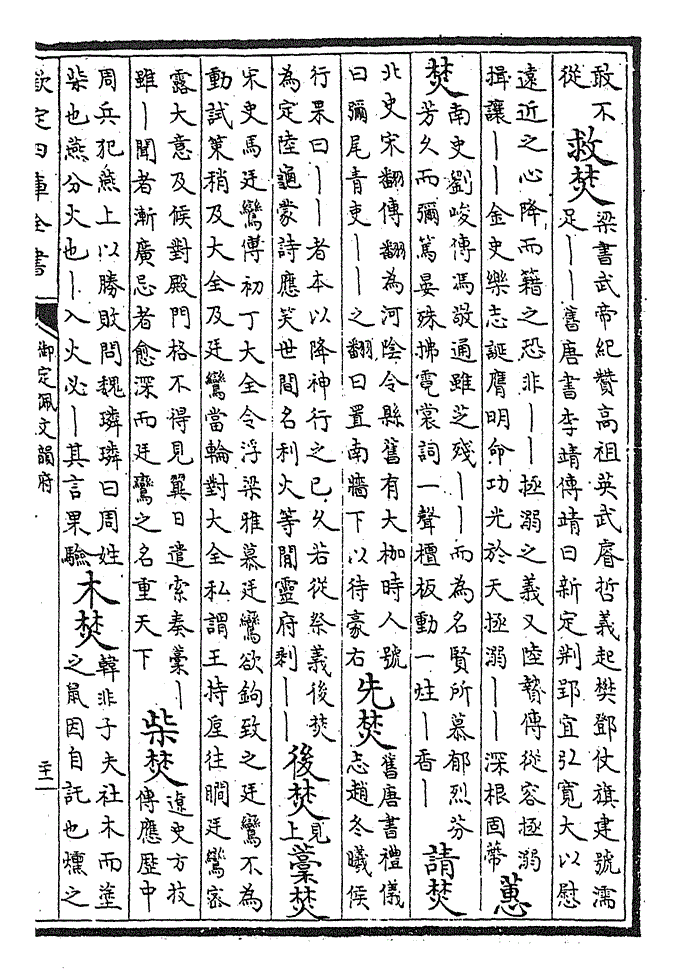 敢不
從
救焚
梁書武帝紀贊高祖英武睿哲義起樊鄧仗旗建號濡
足丨丨舊唐書李靖傳靖曰新定荆郢宜弘寬大以慰
遠近之心降而籍之恐非丨丨拯溺之義又陸贄傳從容拯溺
揖讓丨丨金史樂志誕膺明命功光於天拯溺丨丨深根固蔕
蕙
焚
南史劉峻傳馮敬通雖芝殘丨丨而為名賢所慕郁烈芬
芳久而彌篤晏殊拂霓裳詞一聲檀板動一炷丨香丨
請焚
北史宋翻傳翻為河陰令縣舊有大枷時人號
曰彌尾青吏丨丨之翻曰置南牆下以待豪右
先焚
舊唐書禮儀
志趙冬曦侯
行果曰丨丨者本以降神行之已久若從祭義後焚
為定陸龜蒙詩應笑世間名利火等閒靈府剩丨丨
後焚
見
上
藁焚
宋史馬廷鸞傳初丁大全令浮梁雅慕廷鸞欲鉤致之廷鸞不為
動試策稍及大全及廷鸞當輪對大全私謂王持垕往瞷廷鸞密
露大意及候對殿門格不得見翼日遣索奏藁丨
雖丨聞者漸廣忌者愈深而廷鸞之名重天下
柴焚
遼史方技
傳應歷中
周兵犯燕上以勝敗問魏璘璘曰周姓
柴也燕分火也丨入火必丨其言果驗
木焚
韓非子夫社木而塗
之鼠因自託也燻之
欽定四庫全書
御定佩文韻府
二十一